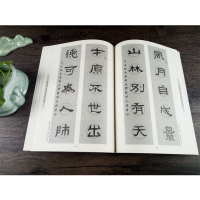 風月自成景
山林別有天
才原不世出
德可為人師